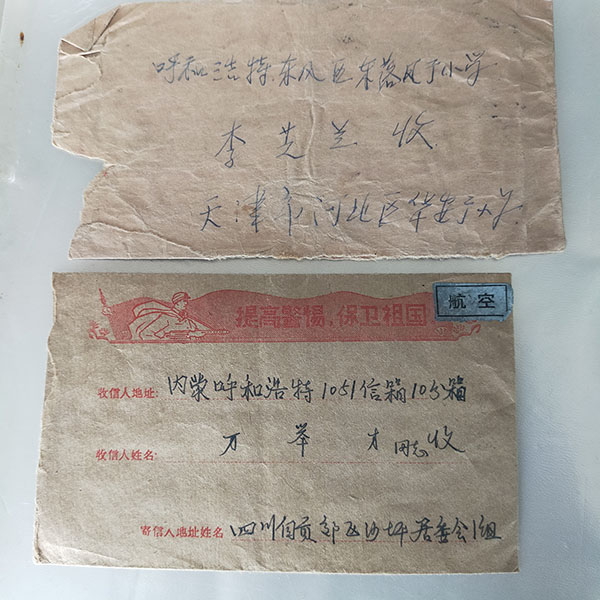 呼和浩特东风区东落凤子小学
李芝兰 收
天津市河北区华安
提高警惕,保卫祖国
航空
收信人地址: 内蒙呼和浩特1051信箱10分箱
收信人姓名: 万举才同志收
寄信人地址姓名 四川自贡郭区沙坪居委会1组